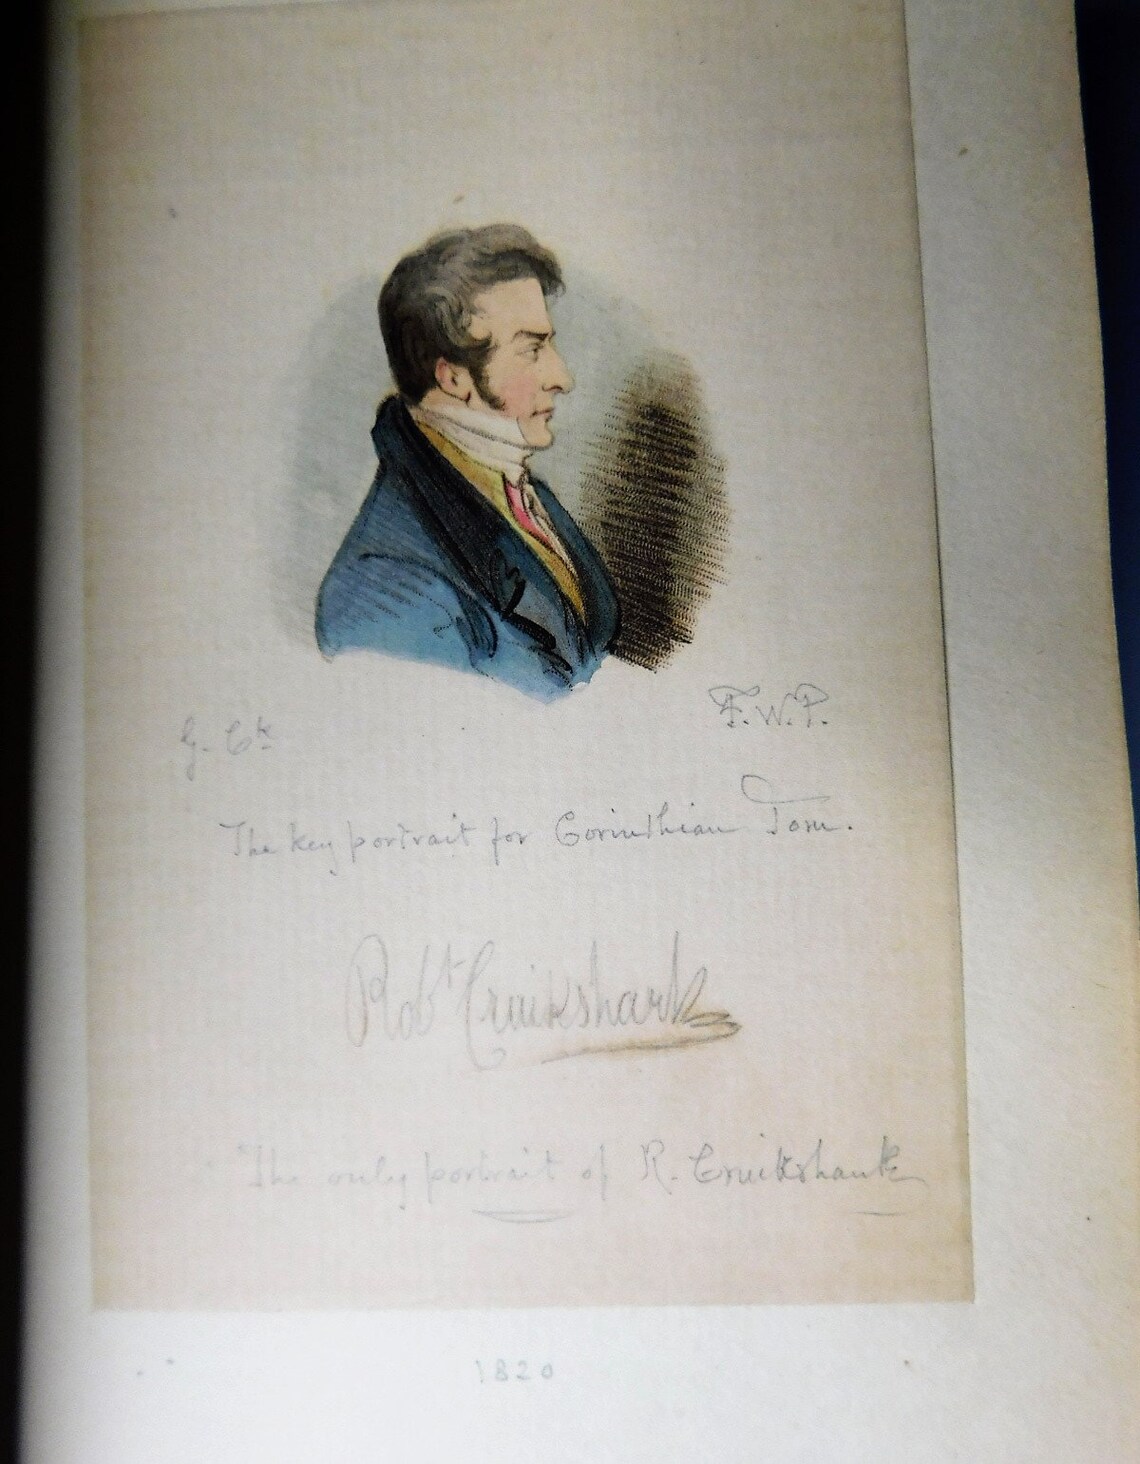 G. Ck. F.W.P.
The key portrait for Corinthian Tom.
Robt Cruikshank
The only portrait of R. Cruikshank
1820